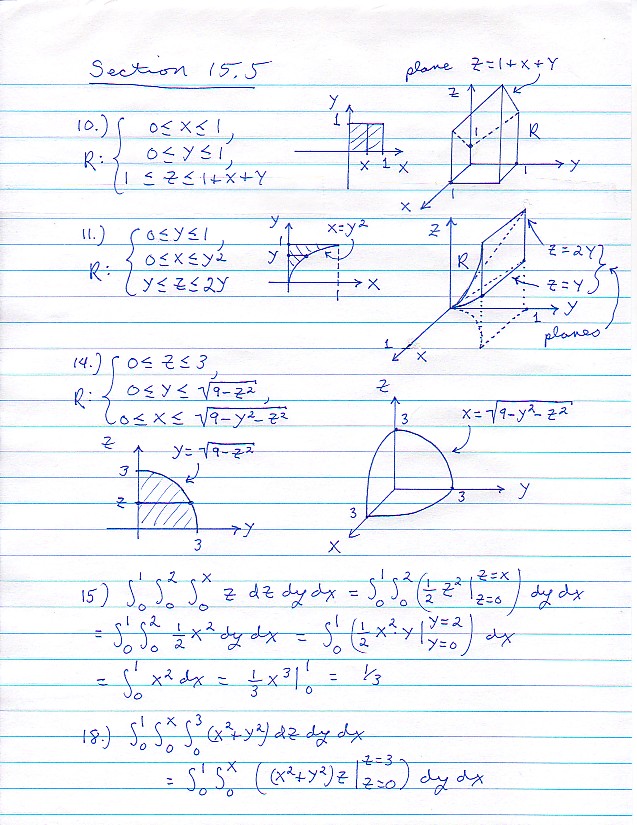 Section 15.5
plane z=1+x+y
10.) R: { 0≤x≤1,
0≤y≤1,
1≤z≤1+x+y
y
1
x 1 x
z
1
R
1
y
1
x
11.) R: { 0≤y≤1,
0≤x≤y2
y≤z≤2y
y
1
y
x=y²
x
z
R
z=2y
z=y
planes
1
y
1
x
14.) R: { 0≤z≤3,
0≤y≤√9-z²,
0≤x≤√9-y²-z²
z
y=√9-z²
3
z
y
3
z
3
x=√9-y²-z²
y
3
3
x
15) ∫₀¹ ∫₀² ∫₀ˣ z dz dy dx = ∫₀¹ ∫₀² (½ z² |z=x z=0) dy dx
= ∫₀¹ ∫₀² ½ x² dy dx = ∫₀¹ (½ x²·y |y=2 y=0) dx
= ∫₀¹ x² dx = ⅓ x³ |₀¹ = 1/3
18.) ∫₀¹ ∫₀ˣ ∫₀³ (x²+y²) dz dy dx
= ∫₀¹ ∫₀ˣ ((x²+y²)z |z=3 z=0) dy dx